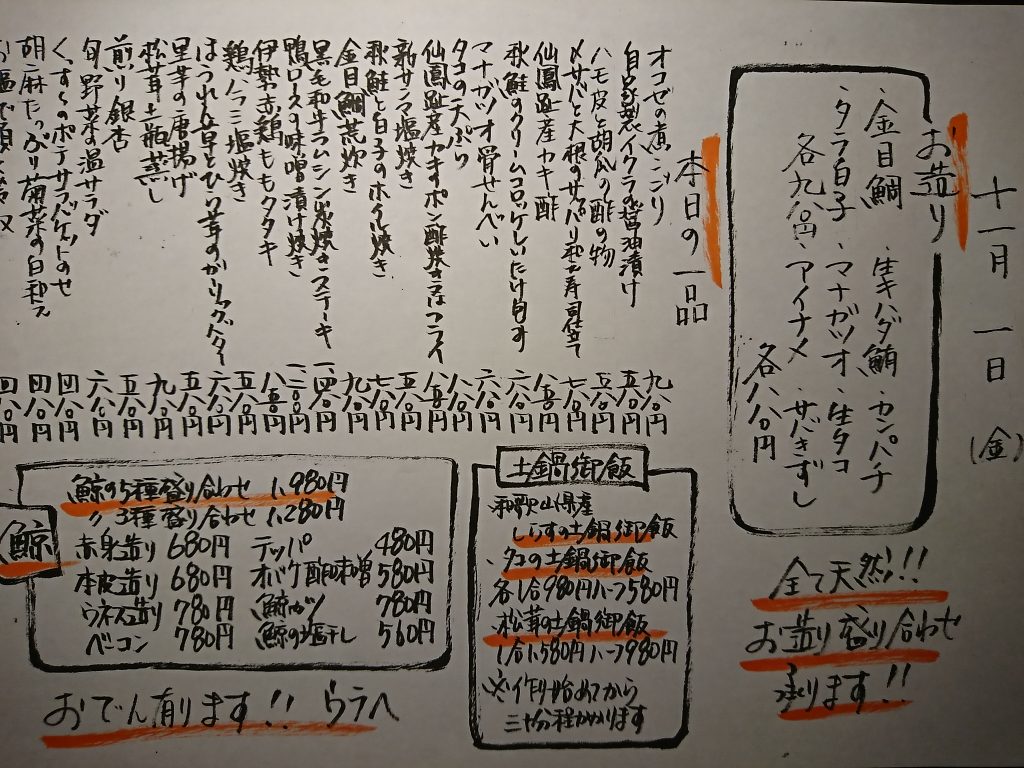 十一月 一日 (金)
お造り
・金目鯛 ・生キハダ鮪 ・カンパチ
・タラ白子 ・マナガツオ ・生タコ
各九八〇円 ・アイナメ ・サバきずし
各八八〇円
全て天然!!
お造り盛り合わせ
承ります!!
本日の一品
オコゼの煮こごり 九八〇円
自家製イクラの醤油漬け 五八〇円
ハモ皮と胡瓜の酢の物 五八〇円
〆サバと大根のサッパリ和え寿司仕立て 七八〇円
仙鳳趾産カキ酢 八五〇円
秋鮭のクリームコロッケしいたけ包み 六八〇円
マナガツオ骨せんべい 六八〇円
タコの天ぷら 八八〇円
仙鳳趾産カキのポン酢焼き又はフライ 八五〇円
新サンマ塩焼き 五八〇円
秋鮭と白子のホイル焼き 七八〇円
金目鯛荒炊き 九八〇円
黒毛和牛ラムシン炭焼きステーキ 一、四八〇円
鴨ロースの味噌漬け焼き 一、二八〇円
伊勢赤鶏ももタタキ 八五〇円
鶏ハラミ塩焼き 五八〇円
ほうれん草とひら茸のガーリックバター 六八〇円
里芋の唐揚げ 五八〇円
松茸土瓶蒸し 九八〇円
煎り銀杏 五八〇円
旬野菜の温サラダ 六八〇円
くんたまのポテサラバケットのせ 四八〇円
胡麻たっぷり菊菜の白和え 四八〇円
四八〇円
土鍋御飯
・和歌山県産
しらすの土鍋御飯
・タコの土鍋御飯
各1合980円ハーフ580円
・松茸の土鍋御飯
1合1,580円ハーフ980円
※作り始めてから
三十分程かかります
鯨
鯨の5種盛り合わせ 1,980円
〃 3種盛り合わせ 1,280円
赤身造り 680円 テッパ 480円
本皮造り 680円 オバケ酢味噌 580円
ウネス造り 780円 鯨カツ 780円
ベーコン 780円 鯨の塩干し 560円
おでん有ります!! ウラへ